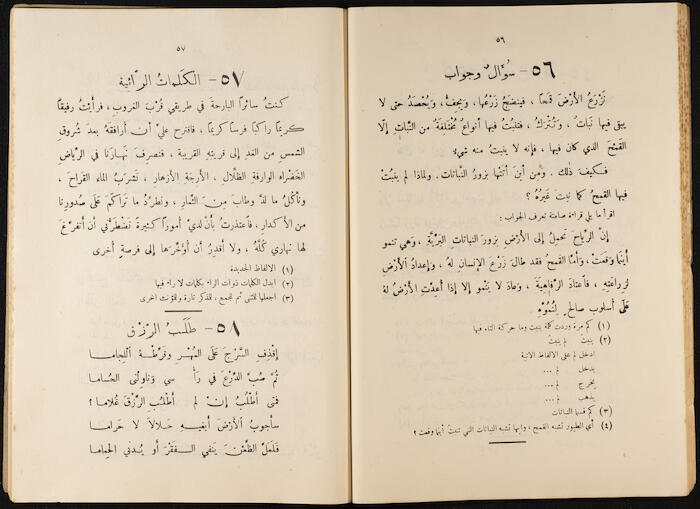 ٥٦
٥٦ - سُؤَالٌ وجواب
تُزْرَعُ الأَرْضُ قَمْحًا، فينضَجُ زَرْعُها، ويَجِفُّ، ويُحْصَدُ حتى لا
يبقى فيها نَباتٌ، وتُتْرَكُ، فتنبُتُ فيها أنواعٌ مُخْتَلِفَةٌ من النَّباتِ إلَّا
القَمْحَ الذي كان فيها، فإنه لا ينبتُ منه شيءٌ
فكيف ذلك. ومن أين أتتها بزورُ النباتات. ولماذا لم ينبُتْ
فيها القمحُ كما نبتَ غيرُهُ؟
اقرأ ما يلي قراءة صامتة تعرف الجواب:
إنَّ الرياحَ تحمِلُ إلى الأرْضِ بزورَ النباتاتِ البرِّيَّةِ، وهي تنمو
أينما وقعَتْ، وأمَّا القمحُ فقد طالَ زَرْعُ الإنسانِ لهُ، وإعدادُ الأرْضِ
لزراعتِهِ، فاعتادَ الرَّفاهِيَةَ، وعادَ لا يَنْمو إلا إذا أُعِدَّتِ الأرْضُ لهُ
على أسلوبٍ صالحٍ لِنُمُوِّهِ
(١) كم مرة وردت كلمة ينبت وما حركة التاء فيها
(٢) ينبتُ لم ينبتْ
ادخل لم على الالفاظ الاتية
يدخل لم ...
يخرج لم ...
يذهب لم ...
(٣) كم قسما النباتات
(٤) أي الطيور تشبه القمح، وايها تشبه النباتات التي تنبت أينما وقعت؟
٥٧
٥٧ - الكَلِماتُ الرَّائية
كنتُ سائرًا البارحةَ في طريقي قُرْبَ الغروبِ، فرأيْتُ رفيقًا
كريمًا راكبًا فرسا كريمًا، فاقترح عليَّ أن أرافقَهُ بعدَ شروقِ
الشمسِ من الغدِ إلى قريتِهِ القريبة، فنصرف نَهارَنا في الرياضِ
الخضراءِ الوارفةِ الظِّلالِ، الأرجةِ الأزهارِ، نَشرَبُ الماءَ القَراحَ،
ونأكُلُ ما لذَّ وطابَ مِنَ الثِّمارِ، ونَطرُدُ ما تَراكَمَ عَلَى صُدورِنا
من الأكدارِ، فاعتذرتُ بأنَّ لديَّ أمورًا كثيرةً تَضْطَرُّني أن أتفرَّغَ
لها نهاري كُلَّهُ، ولا أقدِرُ أن أؤخِّرَها إلى فرصةٍ أخرى
(١) الالفاظ الجديدة
(٢) ابدل الكلمات ذوات الراء بكلمات لا راء فيها
(٣) اجعلها للمثنى ثم للجمع، للمذكر تارة وللمؤنث اخرى
٥٨ - طَلَبُ الرِّزْق
إقْذِفِ السَّرْجَ عَلَى المُهْرِ وقَرِّطْهُ اللِّجاما
ثُمَّ صُبَّ الدِّرْعَ في رَأْسِي وناوِلْني الحُساما
فمتى أَطْلُبُ إنْ لَمْ أَطْلُبِ الرِّزْقَ غُلاما؟
سأَجُوبُ الأَرْضَ أَبْغيهِ حَلالاً لا حَراما
فَلَعَلَّ الظَّعْنَ يَنْفي الفَقْرَ أو يُدْني الحِماما